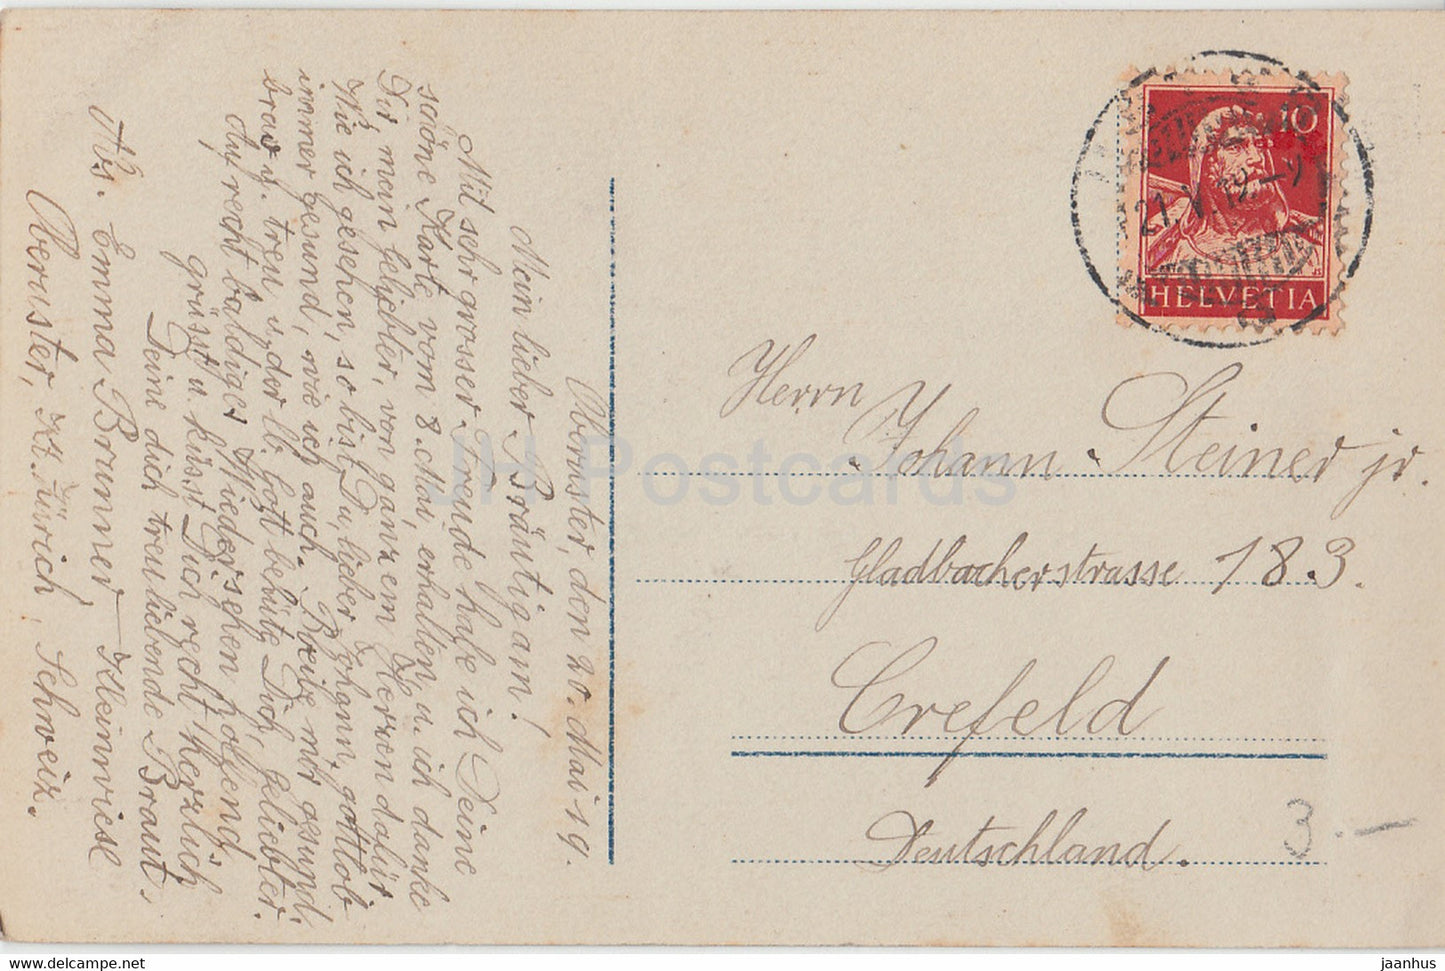 Oberuster, den 20. Mai 19.
Mein lieber Bräutigam!
Mit sehr grosser Freude habe ich Deine
schöne Karte vom 8. Mai, erhalten, u. ich danke
Dir, mein geliebter, von ganzem Herzen dafür.
Wie ich gesehen, so bist Du, lieber Johann, gottlob
immer gesund, wie ich auch. Bleibe mir gesund,
brav u. treu u. der lb. Gott behüte Dich, geliebter.
Auf recht baldiges Wiedersehen hoffend,
grüsst u. küsst Dich recht herzlich
Deine dich treu liebende Braut.
Abs. Emma Brunner Kleinwiese
Oberuster, Kt. Zürich, Schweiz.
10
HELVETIA
21. V. 19. - 9
Herrn
Johann Steiner jr.
Gladbacherstrasse 183.
Crefeld
Deutschland.
3.—
JH Postcards
jaanhus jaanhus.com